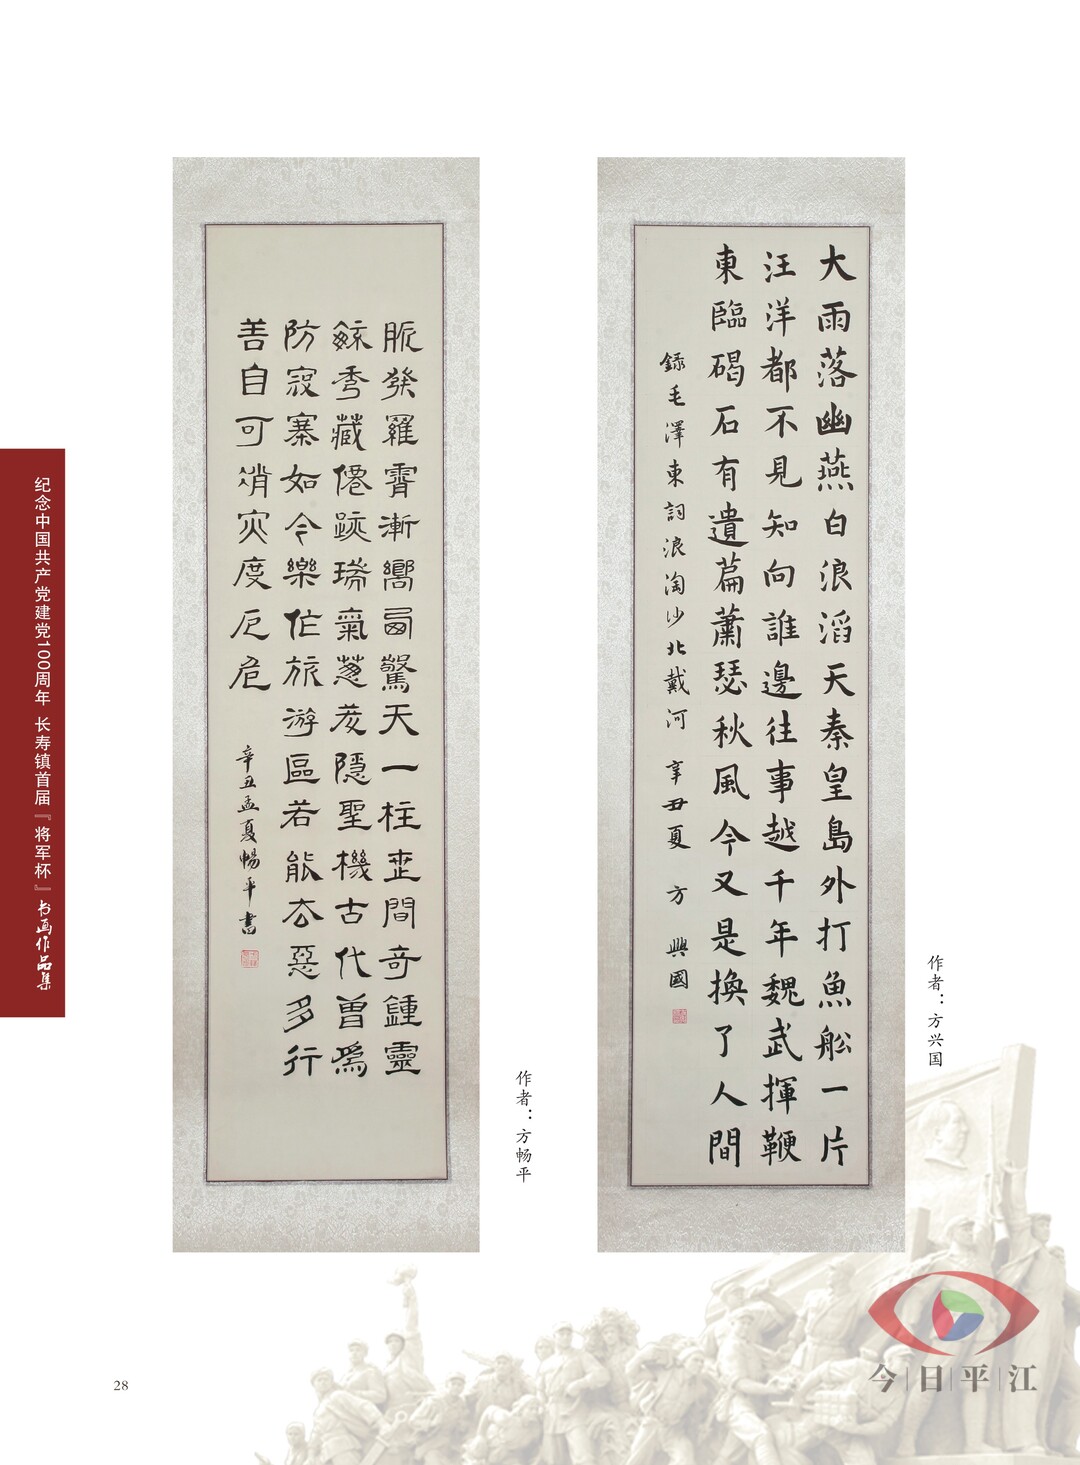 纪念中国共产党建党100周年 长寿镇首届『将军杯』书画作品集
大雨落幽燕白浪滔天秦皇島外打魚舩一片
汪洋都不見知向誰邊往事越千年魏武揮鞭
東臨碣石有遺篇蕭瑟秋風今又是換了人間
錄毛澤東詞浪淘沙北戴河 辛丑夏 方興國
作者：方兴国
脈發羅霄漸嚮西驚天一柱世間奇鍾靈
毓秀藏僊跡瑞氣蔥隱聖機古代曾爲
防寇寨如今樂作旅游區若能去惡多行
善自可消灾度厄危
辛丑孟夏暢平書
作者：方畅平
28
今日平江